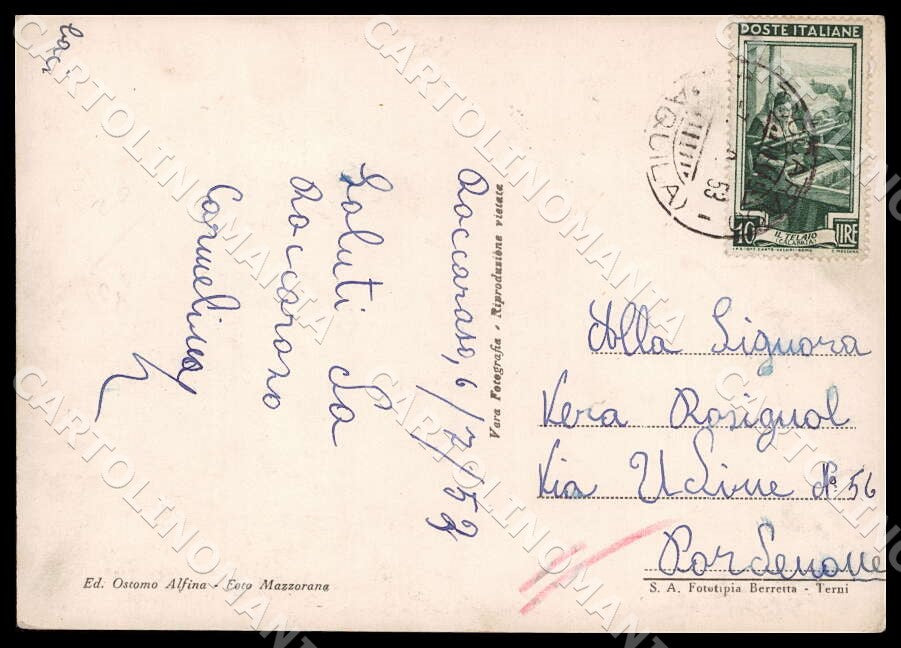 Roccaraso, 6/7/53
Saluti da
Roccaraso
Carmelina
Baci
Alla Signora
Vera Rosignol
Via Udine Nº 56
Pordenone
POSTE ITALIANE
10 LIRE
IL TELAIO
(CALABRIA)
(AQUILA)
53
Vera Fotografia - Riproduzione vietata
Ed. Ostomo Alfina - Foto Mazzorana
S. A. Fototipia Berretta - Terni
CARTOLINOMANIA